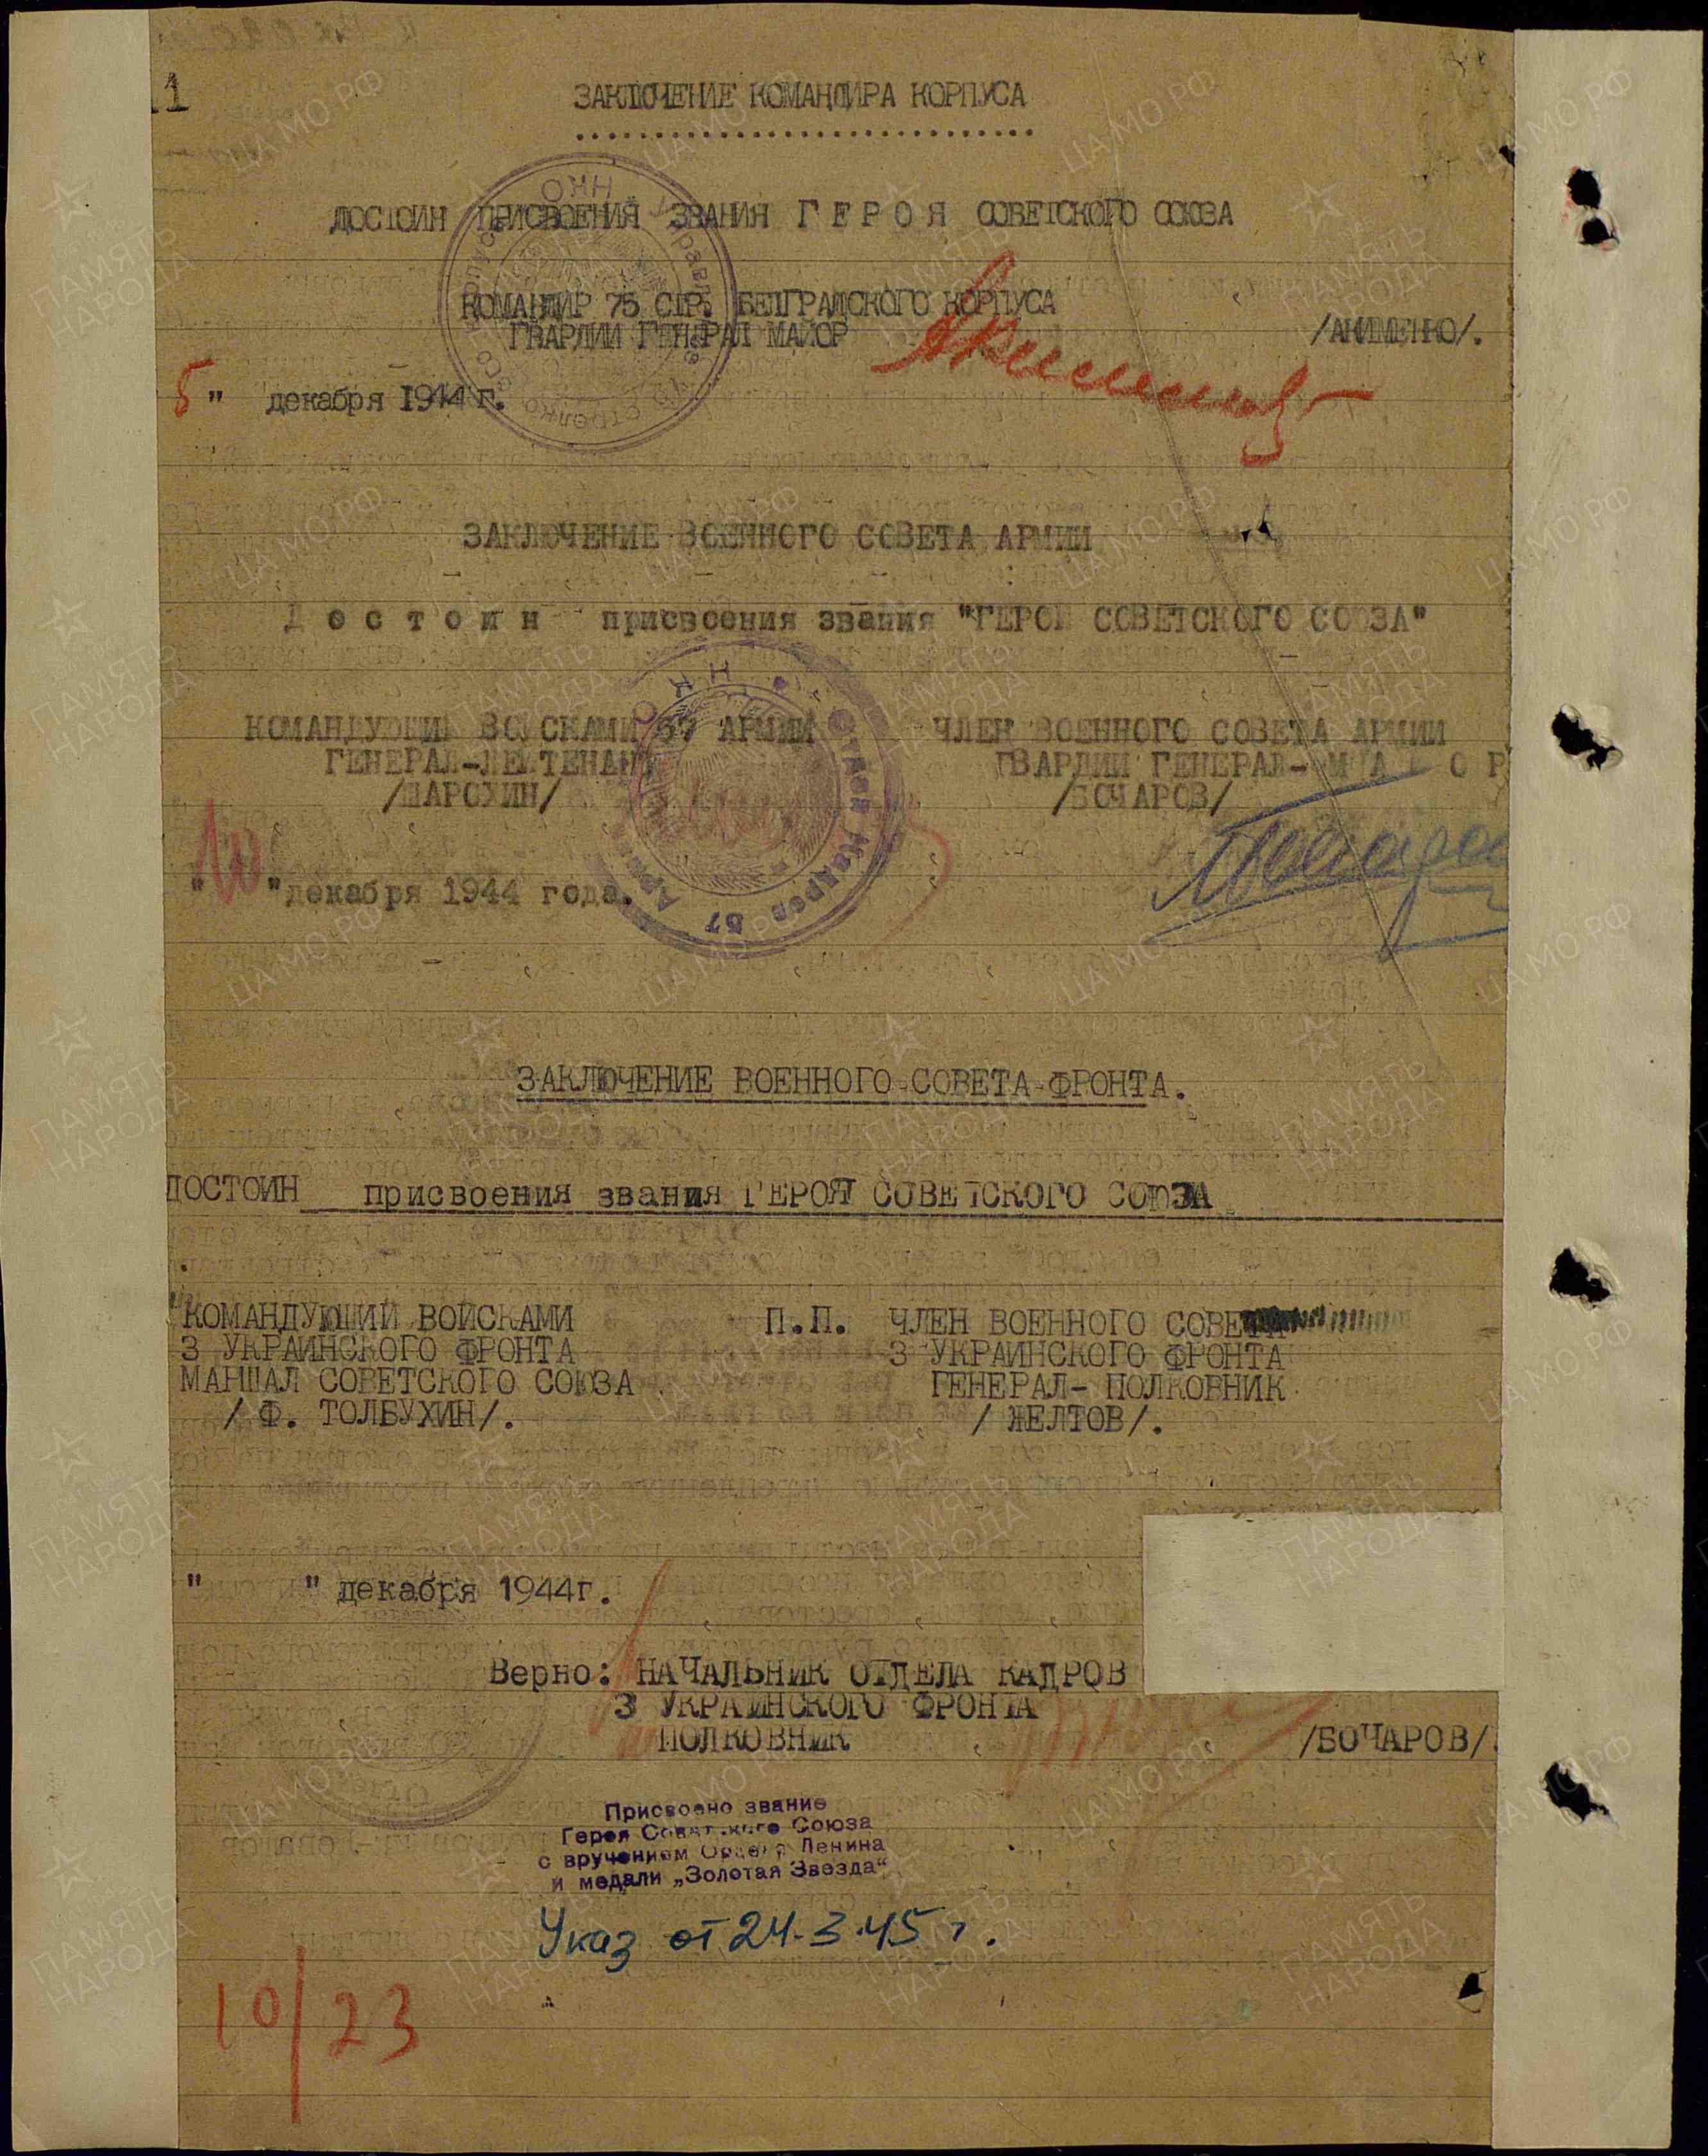 11
ЗАКЛЮЧЕНИЕ КОМАНДИРА КОРПУСА
ДОСТОИН ПРИСВОЕНИЯ ЗВАНИЯ Г Е Р О Я СОВЕТСКОГО СОЮЗА
КОМАНДИР 75 СТР. БЕЛГРАДСКОГО КОРПУСА
ГВАРДИИ ГЕНЕРАЛ МАЙОР /АКИМЕНКО/.
5" декабря 1944 г.
ЗАКЛЮЧЕНИЕ ВОЕННОГО СОВЕТА АРМИИ
Д о с т о и н присвоения звания "ГЕРОЙ СОВЕТСКОГО СОЮЗА"
КОМАНДУЮЩИЙ ВОЙСКАМИ 57 АРМИИ ЧЛЕН ВОЕННОГО СОВЕТА АРМИИ
ГЕНЕРАЛ-ЛЕЙТЕНАНТ ГВАРДИИ ГЕНЕРАЛ- М А Й О Р
/ШАРОХИН/ /БОЧАРОВ/
"10" декабря 1944 года.
ЗАКЛЮЧЕНИЕ ВОЕННОГО СОВЕТА ФРОНТА.
ДОСТОИН присвоения звания ГЕРОЯ СОВЕТСКОГО СОЮЗА
КОМАНДУЮЩИЙ ВОЙСКАМИ П.П. ЧЛЕН ВОЕННОГО СОВЕТА
3 УКРАИНСКОГО ФРОНТА 3 УКРАИНСКОГО ФРОНТА
МАРШАЛ СОВЕТСКОГО СОЮЗА ГЕНЕРАЛ- ПОЛКОВНИК
/ Ф. ТОЛБУХИН/. / ЖЕЛТОВ/.
" " декабря 1944г.
Верно: НАЧАЛЬНИК ОТДЕЛА КАДРОВ
3 УКРАИНСКОГО ФРОНТА
ПОЛКОВНИК /БОЧАРОВ/.
Присвоено звание
Героя Советского Союза
с вручением Ордена Ленина
и медали „Золотая Звезда“
Указ от 24.3.45 г.
10/23